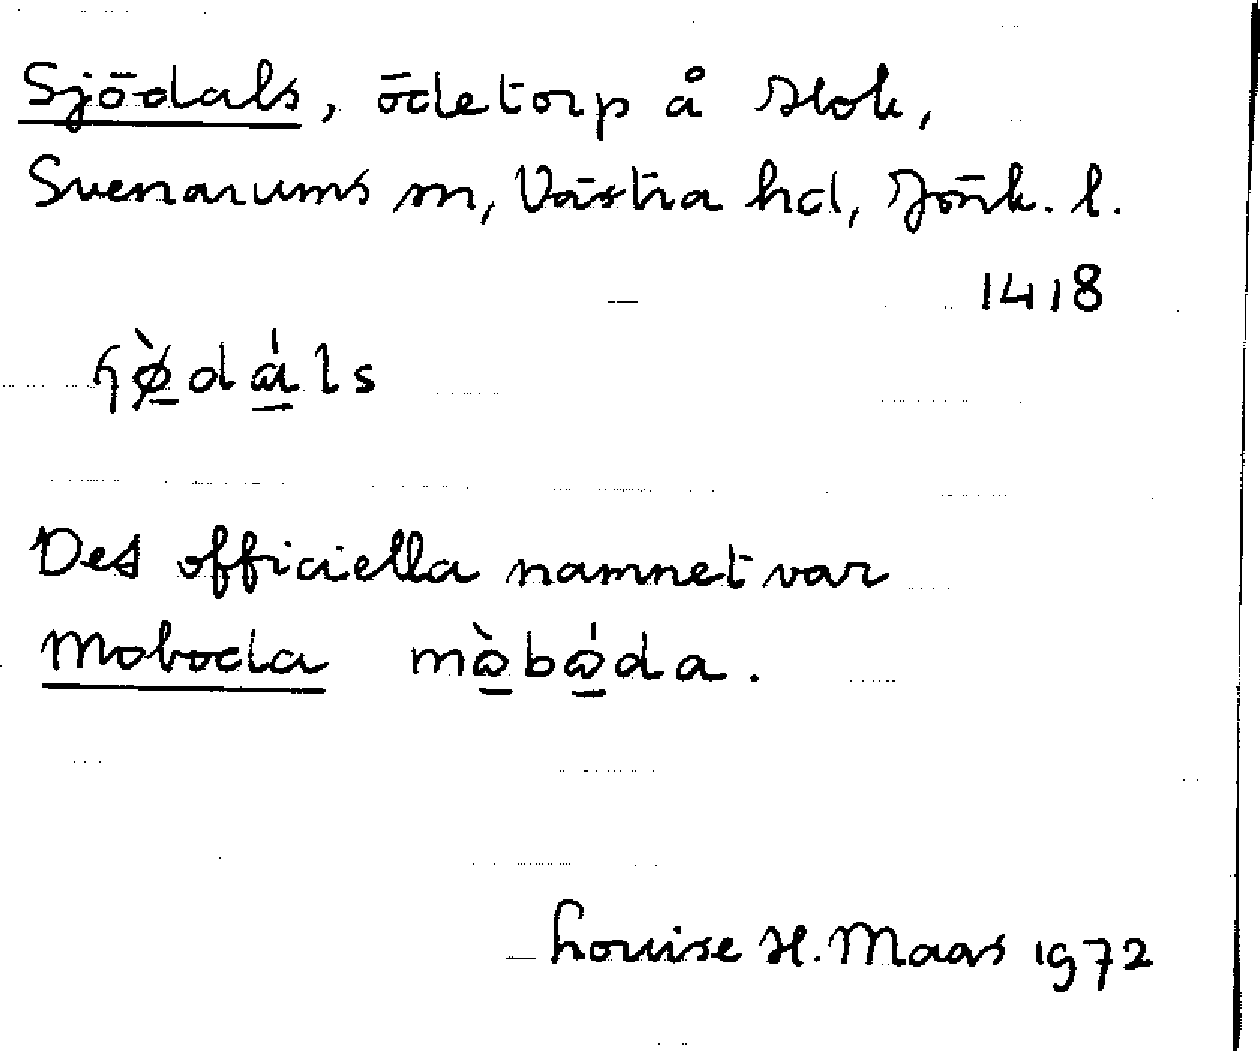 Sjödals, ödetorp å Hok,
Svenarums sn, Västra hd, Jönk. l.
1418
ɧø̠̀dɑ̠́ls
Det officiella namnet var
Moboda mὼ̠bώ̠da.
Louise H. Maas 1972